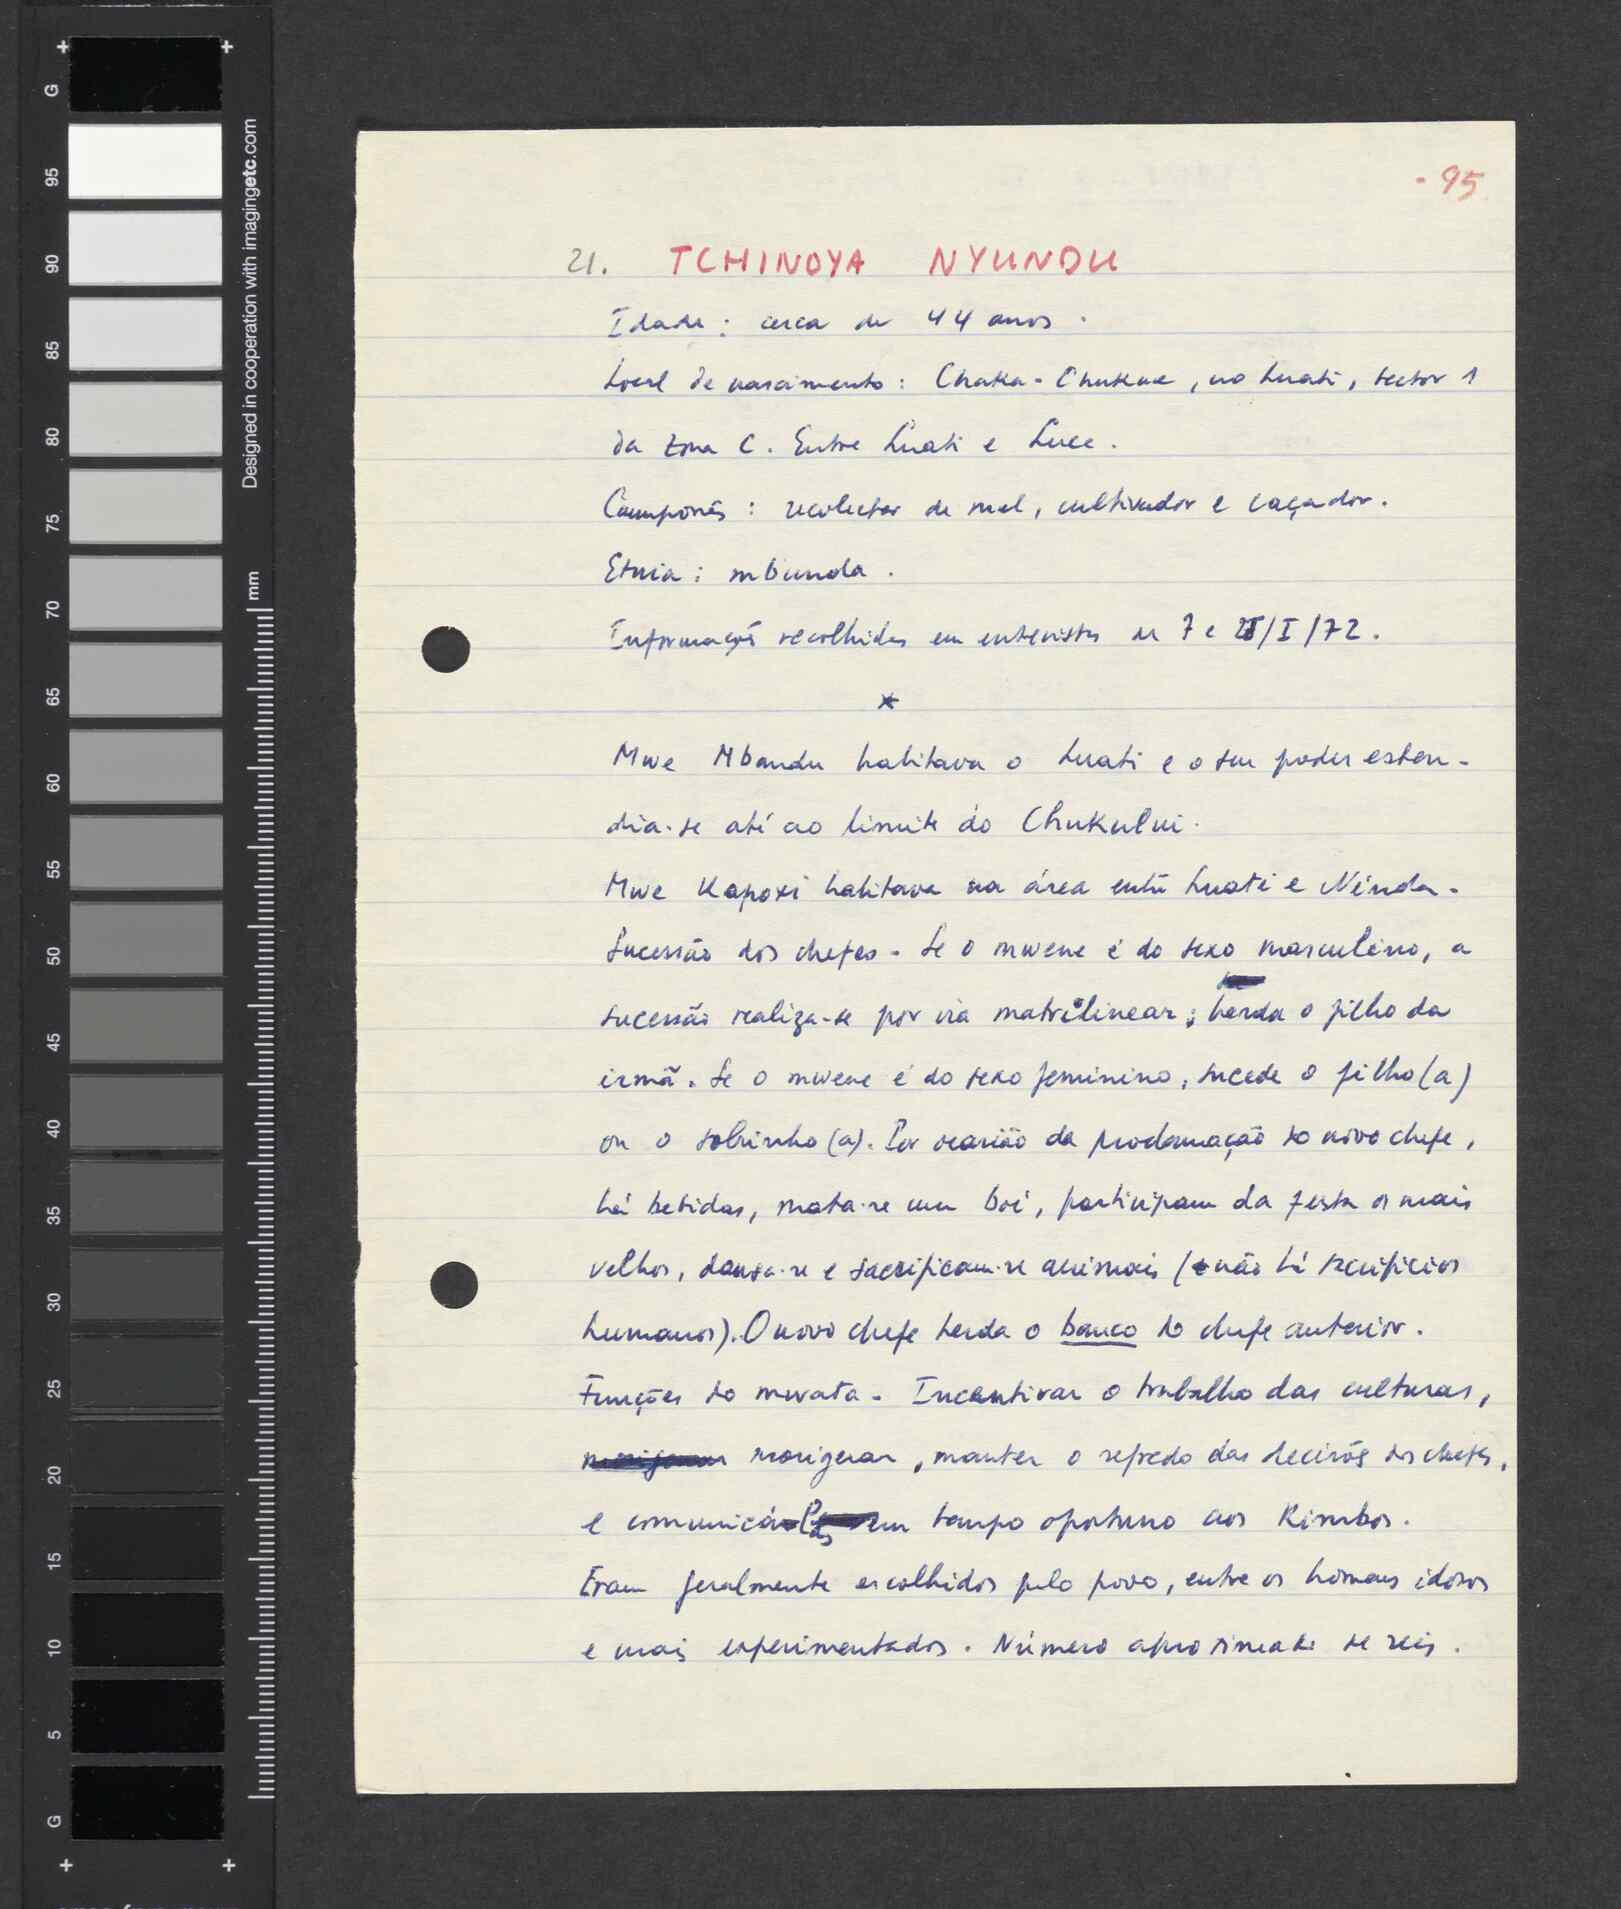 - 95
21. TCHINOYA NYUNDU
Idade: cerca de 44 anos.
Local de nascimento: Chaka-Chukue, no Luati, sector 1
da zona C. Entre Luati e Luce.
Camponês: recolector de mel, cultivador e caçador.
Etnia: mbunda.
Informações recolhidas em entrevistas de 7 e /I/72.
*
Mwe Mbandu habitava o Luati e o seu poder esten-
dia-se até ao limite do Chukului.
Mwe Kapoxi habitava na área entre Luati e Ninda.
Sucessão dos chefes - Se o mwene é do sexo masculino, a
sucessão realiza-se por via matrilinear; herda o filho da
irmã. Se o mwene é do sexo feminino, sucede o filho(a)
ou o sobrinho(a). Por ocasião da proclamação do novo chefe,
há bebidas, mata-se um boi, participam da festa os mais
velhos, dansa-se e sacrificam-se animais (não há sacrificios
humanos). O novo chefe herda o banco do chefe anterior.
Funções do mwata - Incentivar o trabalho das culturas,
morigerar, manter o segredo das decisões dos chefes,
e comunicá-las em tempo oportuno aos Kimbos.
Eram geralmente escolhidos pelo povo, entre os homens idosos
e mais experimentados. Número aproximado de seis.
G
95
90
85
80
75
70
65
60
55
50
45
40
35
30
25
20
15
10
5
G
mm
Designed in cooperation with imagingetc.com